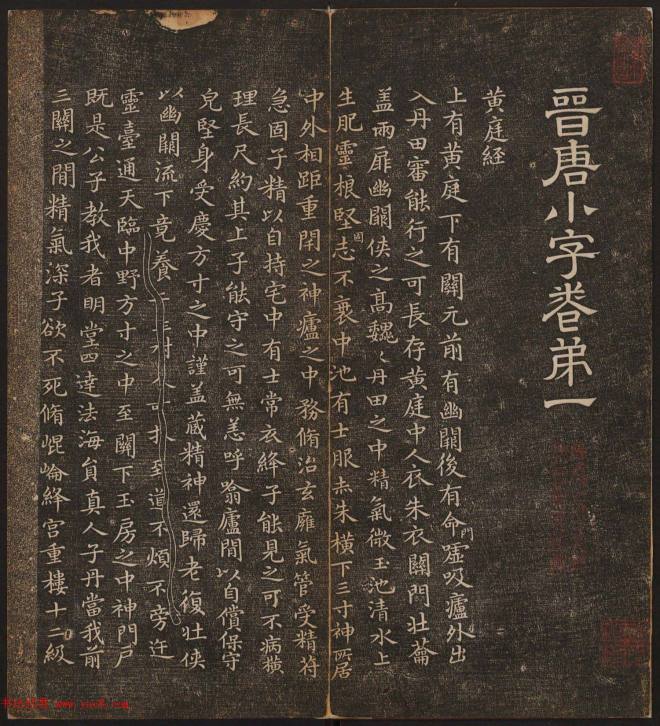 晉唐小字卷弟一
黃庭経
上有黃庭下有關元前有幽闕後有命門噓吸廬外出
入丹田審能行之可長存黃庭中人衣朱衣關門壯蘥
盖兩扉幽闕俠之高魏〻丹田之中精氣微玉池清水上
生肥靈根堅固志不衰中池有士服赤朱橫下三寸神所居
中外相距重閉之神廬之中務脩治玄廱氣管受精符
急固子精以自持宅中有士常衣絳子能見之可不病橫
理長尺約其上子能守之可無恙呼翕廬間以自償保守
皃堅身受慶方寸之中謹盖藏精神還歸老復壯俠
以幽闕流下竟養至道不煩不旁迕
靈臺通天臨中野方寸之中至關下玉房之中神門戶
既是公子教我者明堂四達法海員真人子丹當我前
三關之間精氣深子欲不死脩崐崘絳宮重樓十二級